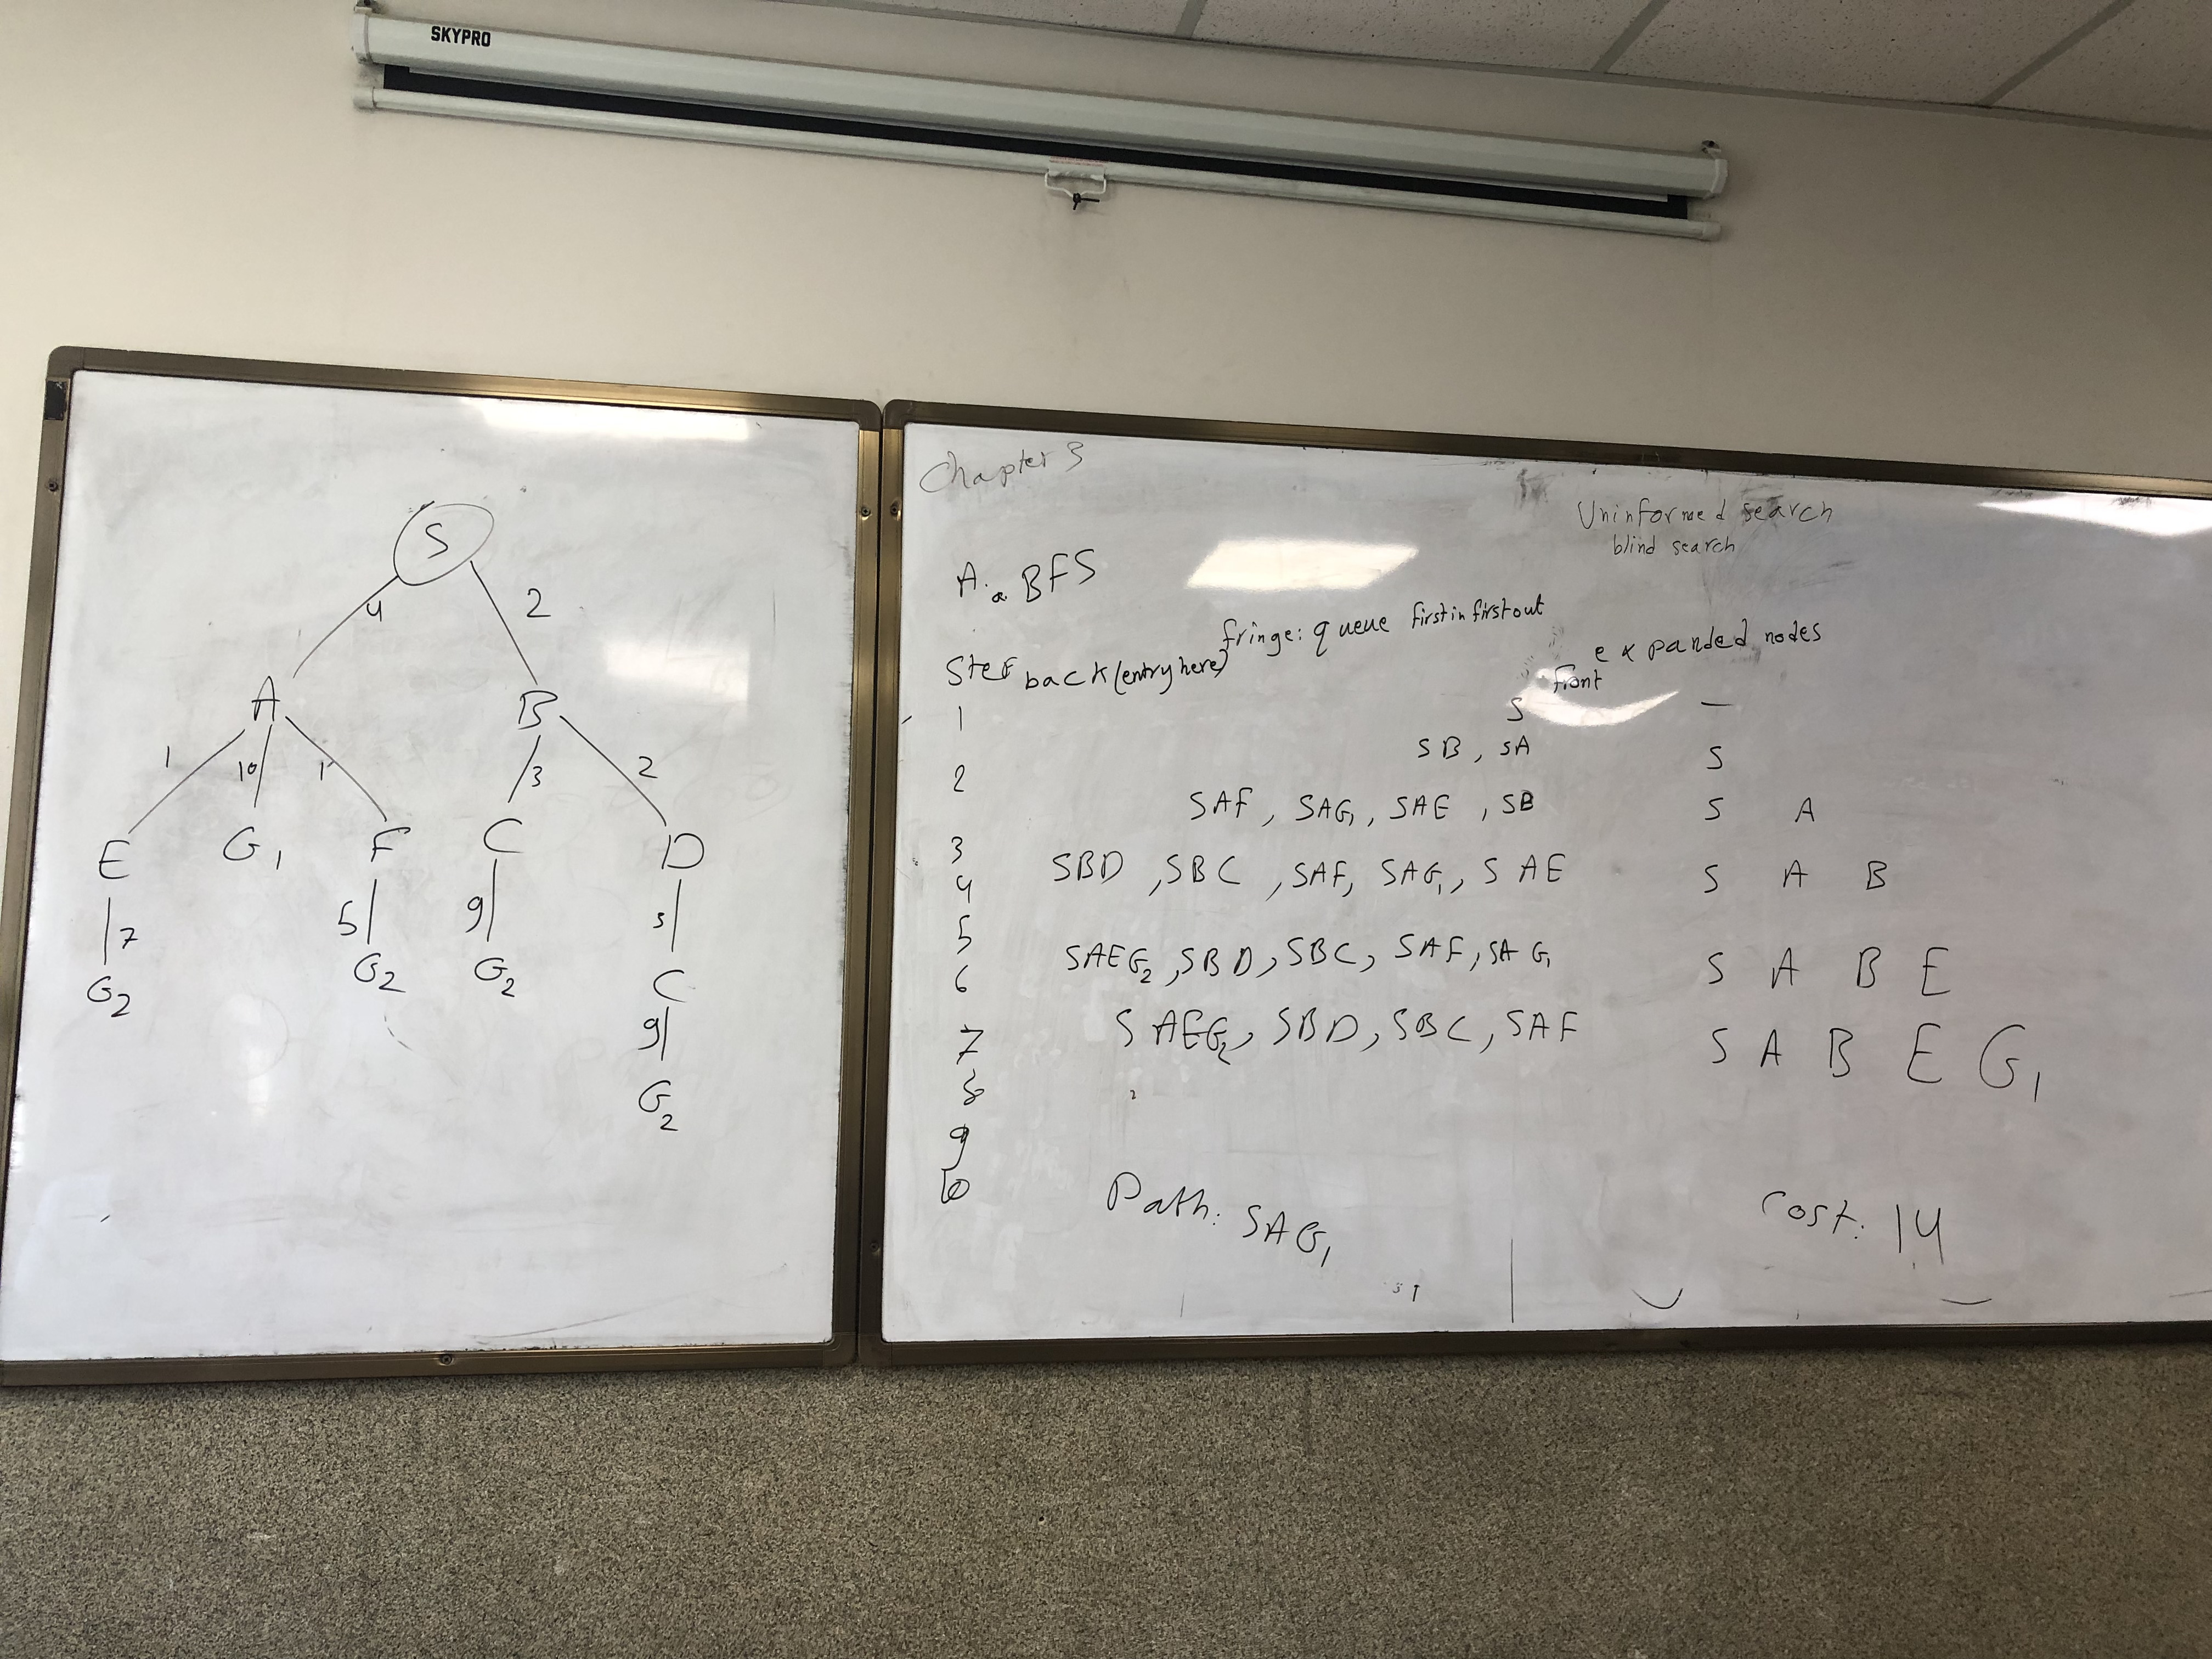 SKYPRO
S
4 2
A B
1 10 1 3 2
E G1 F C D
7 5 9
G2 G2 G2 C
9
G2
Chapter 3
Uninformed search
blind search
A. a BFS
fringe: queue first in first out
Step back (entry here) front expanded nodes
1 S —
2 SB, SA S
3 SAF, SAG1, SAE, SB S A
4 SBD, SBC, SAF, SAG1, SAE S A B
5
6 SAEG2, SBD, SBC, SAF, SAG1 S A B E
7 SAEG2, SBD, SBC, SAF S A B E G1
8
9
10
Path: SAG1 Cost: 14